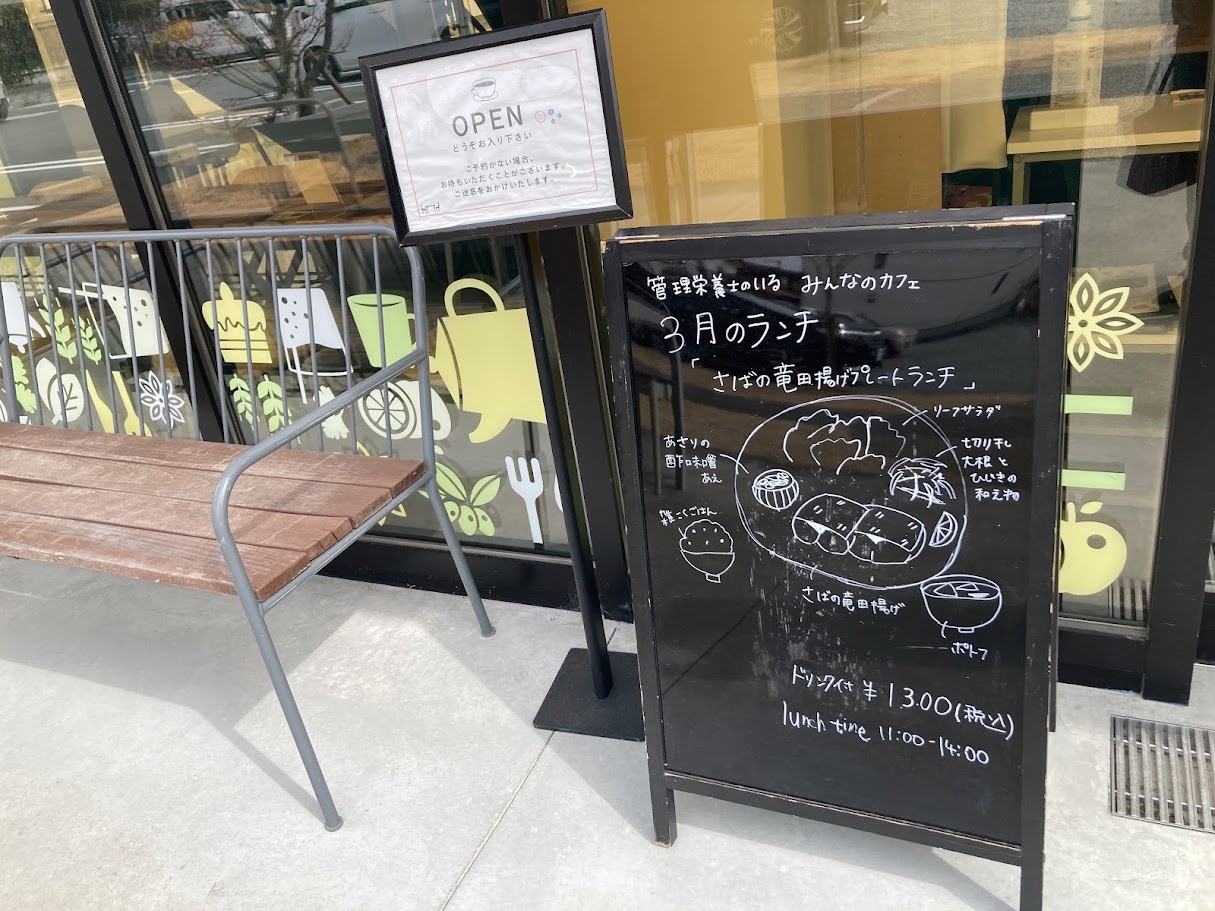 OPEN
どうぞお入り下さい
ご予約がない場合、
お待ちいただくことがございます。
ご迷惑をおかけいたします。
管理栄養士のいる みんなのカフェ
3月のランチ
「さばの竜田揚げプレートランチ」
リーフサラダ
あさりの
酢味噌
あえ
切り干し
大根と
ひじきの
和え物
雑こくごはん
さばの竜田揚げ
ポトフ
ドリンク付 ¥1300(税込)
lunch time 11:00-14:00